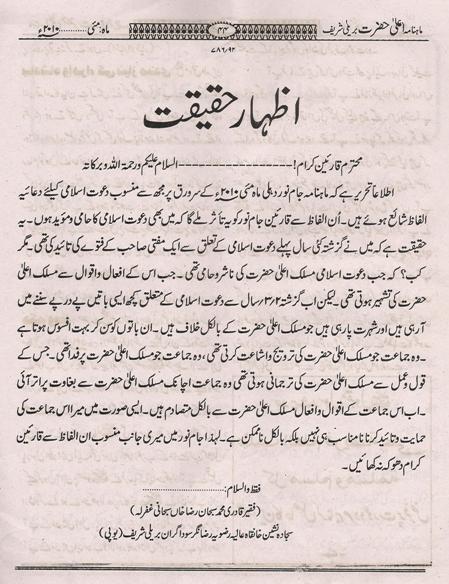 ماہنامہ اعلیٰ حضرت بریلی شریف
۴۳
ماہ: مئی ..........۲۰۱۰ء
۷۸۶/۹۲
اظہار حقیقت
محترم قارئین کرام! ------------------ السلام علیکم ورحمۃ اللہ وبرکاتہ
اطلاعاً تحریر ہے کہ ماہنامہ جام نور دہلی ماہ مئی ۲۰۱۰ء کے سرورق پر مجھ سے منسوب دعوت اسلامی کیلئے دعائیہ
الفاظ شائع ہوئے ہیں۔ اُن الفاظ سے قارئین جام نور کو یہ تأثر ملے گا کہ میں بھی دعوت اسلامی کا حامی ومؤید ہوں۔ یہ
حقیقت ہے کہ میں نے گزشتہ کئی سال پہلے دعوت اسلامی کے تعلق سے ایک مفتی صاحب کے فتوے کی تائید کی تھی۔ مگر
کب؟ کہ جب دعوت اسلامی مسلک اعلیٰ حضرت کی ناشر وحامی تھی۔ جب اس کے افعال واقوال سے مسلک اعلیٰ
حضرت کی تشہیر ہوتی تھی۔ لیکن اب گزشتہ ۲/۳ سال سے دعوت اسلامی کے متعلق کچھ ایسی باتیں پے در پے سننے میں
آرہی ہیں اور شہرت پارہی ہیں جو مسلک اعلیٰ حضرت کے بالکل خلاف ہیں۔ ان باتوں کو سن کر بہت افسوس ہوتا ہے
۔ وہ جماعت جو مسلک اعلیٰ حضرت کی ترویج واشاعت کرتی تھی، وہ جماعت جو مسلک اعلیٰ حضرت پر فدا تھی۔ جس کے
قول وعمل سے مسلک اعلیٰ حضرت کی ترجمانی ہوتی تھی وہ جماعت اچانک مسلک اعلیٰ حضرت سے بغاوت پر اتر آئی
۔ اب اس جماعت کے اقوال وافعال مسلک اعلیٰ حضرت سے بالکل متصادم ہیں۔ ایسی صورت میں میرا اس جماعت کی
حمایت وتائید کرنا نامناسب ہی نہیں بلکہ بالکل ناممکن ہے۔ لہذا جام نور میں میری جانب منسوب ان الفاظ سے قارئین
کرام دھوکہ نہ کھائیں۔
فقط والسلام:................................
(فقیر قادری محمد سبحان رضا خاں سبحانی غفرلہ)
سجادہ نشین خانقاہ عالیہ رضویہ رضا نگر سوداگران بریلی شریف (یوپی)